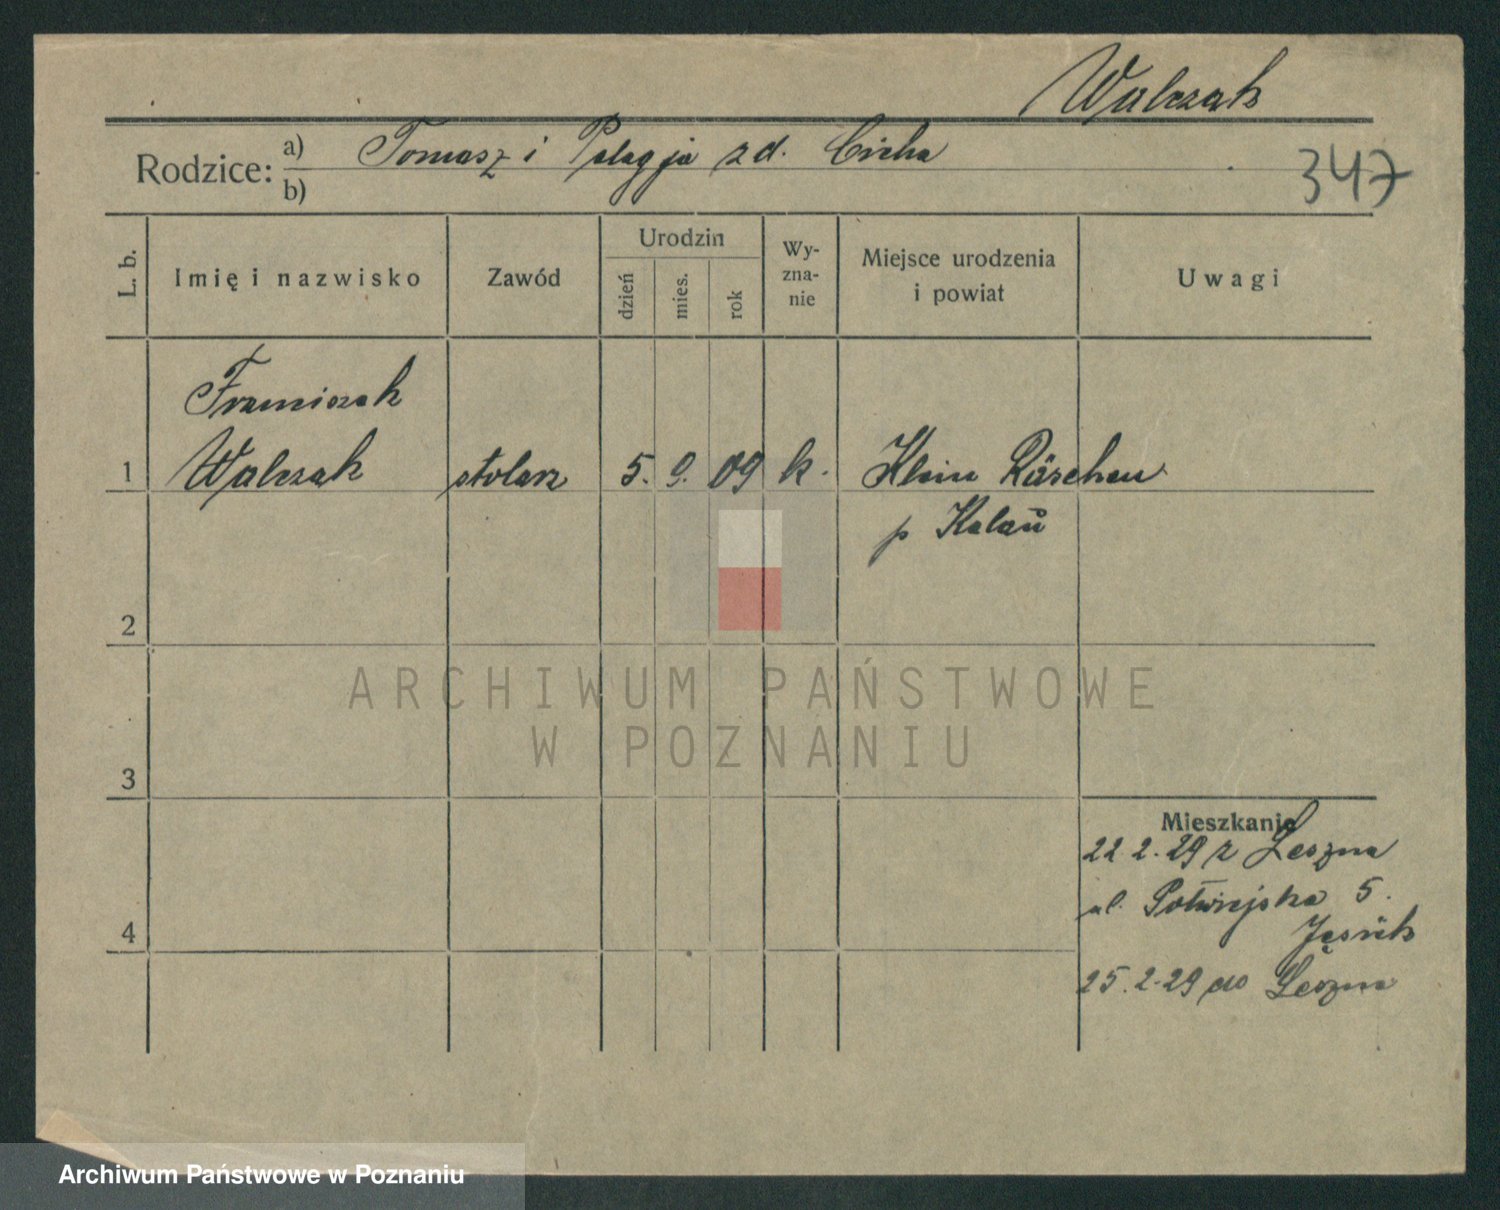 Walczak
Rodzice: a) Tomasz i Pelagja zd. Cicha
b)
347
L. b.
Imię i nazwisko
Zawód
Urodzin
dzień
mies.
rok
Wy-
zna-
nie
Miejsce urodzenia
i powiat
Uwagi
Franciszek
1 Walczak stolarz 5. 9. 09 k. Klein Räschen
p Kalau
2
ARCHIWUM PAŃSTWOWE
W POZNANIU
3
Mieszkanie
22.2.29 z Leszna
ul. Półwiejska 5.
4
25.2.29 do Leszna
Archiwum Państwowe w Poznaniu